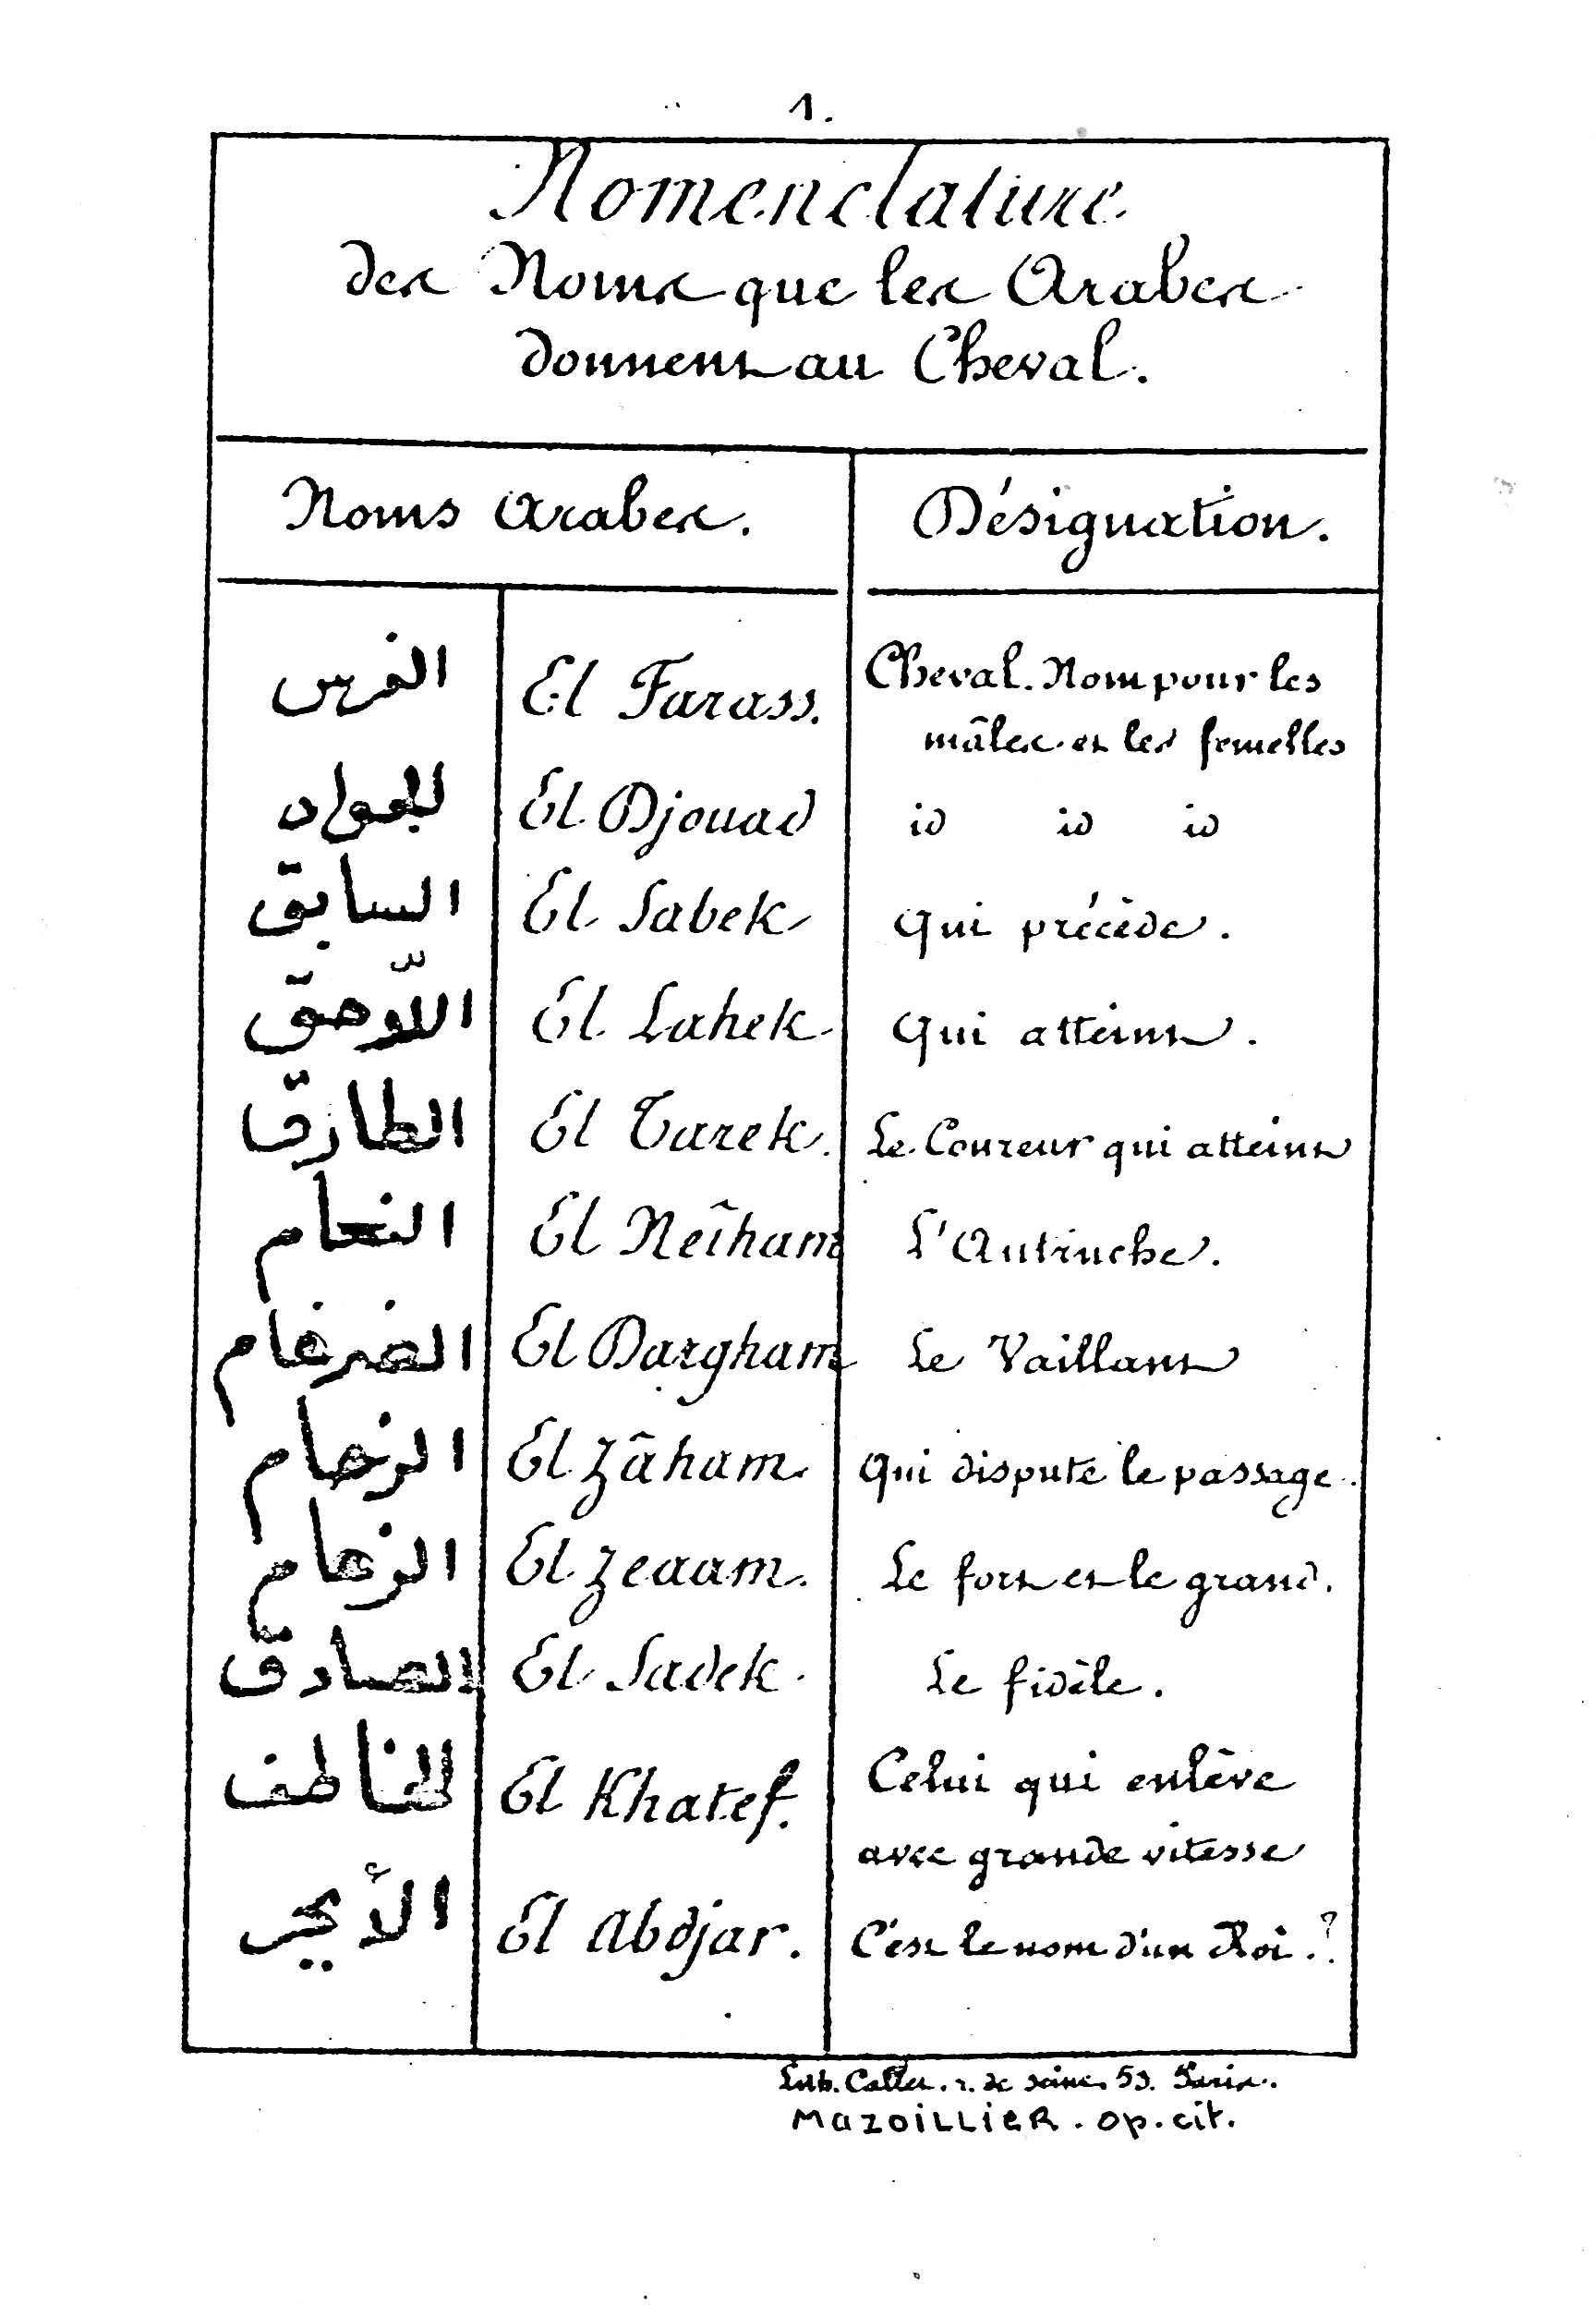 1.
Nomenclature
des Noms que les Arabes
donnent au Cheval.
Noms Arabes. Désignation.
الفرس El Farass. Cheval. Nom pour les
mâles et les femelles
الجواد El Djouad id id id
السابق El Sabek qui précède.
اللاحق El Lahek qui atteint.
الطارق El Tarek. Le Coureur qui atteint
النعام El Neîham L'Autruche.
الضرغام El Dargham Le Vaillant
الزحام El Zâham. qui dispute le passage.
الزعام El Zeaam. Le fort et le grand.
الصادق El Sadek. Le fidèle.
الخاطف El Khatef. Celui qui enlève
avec grande vitesse
الأبجر El Abdjar. C'est le nom d'un Roi.?
Lith. r. de Seine. 53. Paris.
Mazoillier. op. cit.